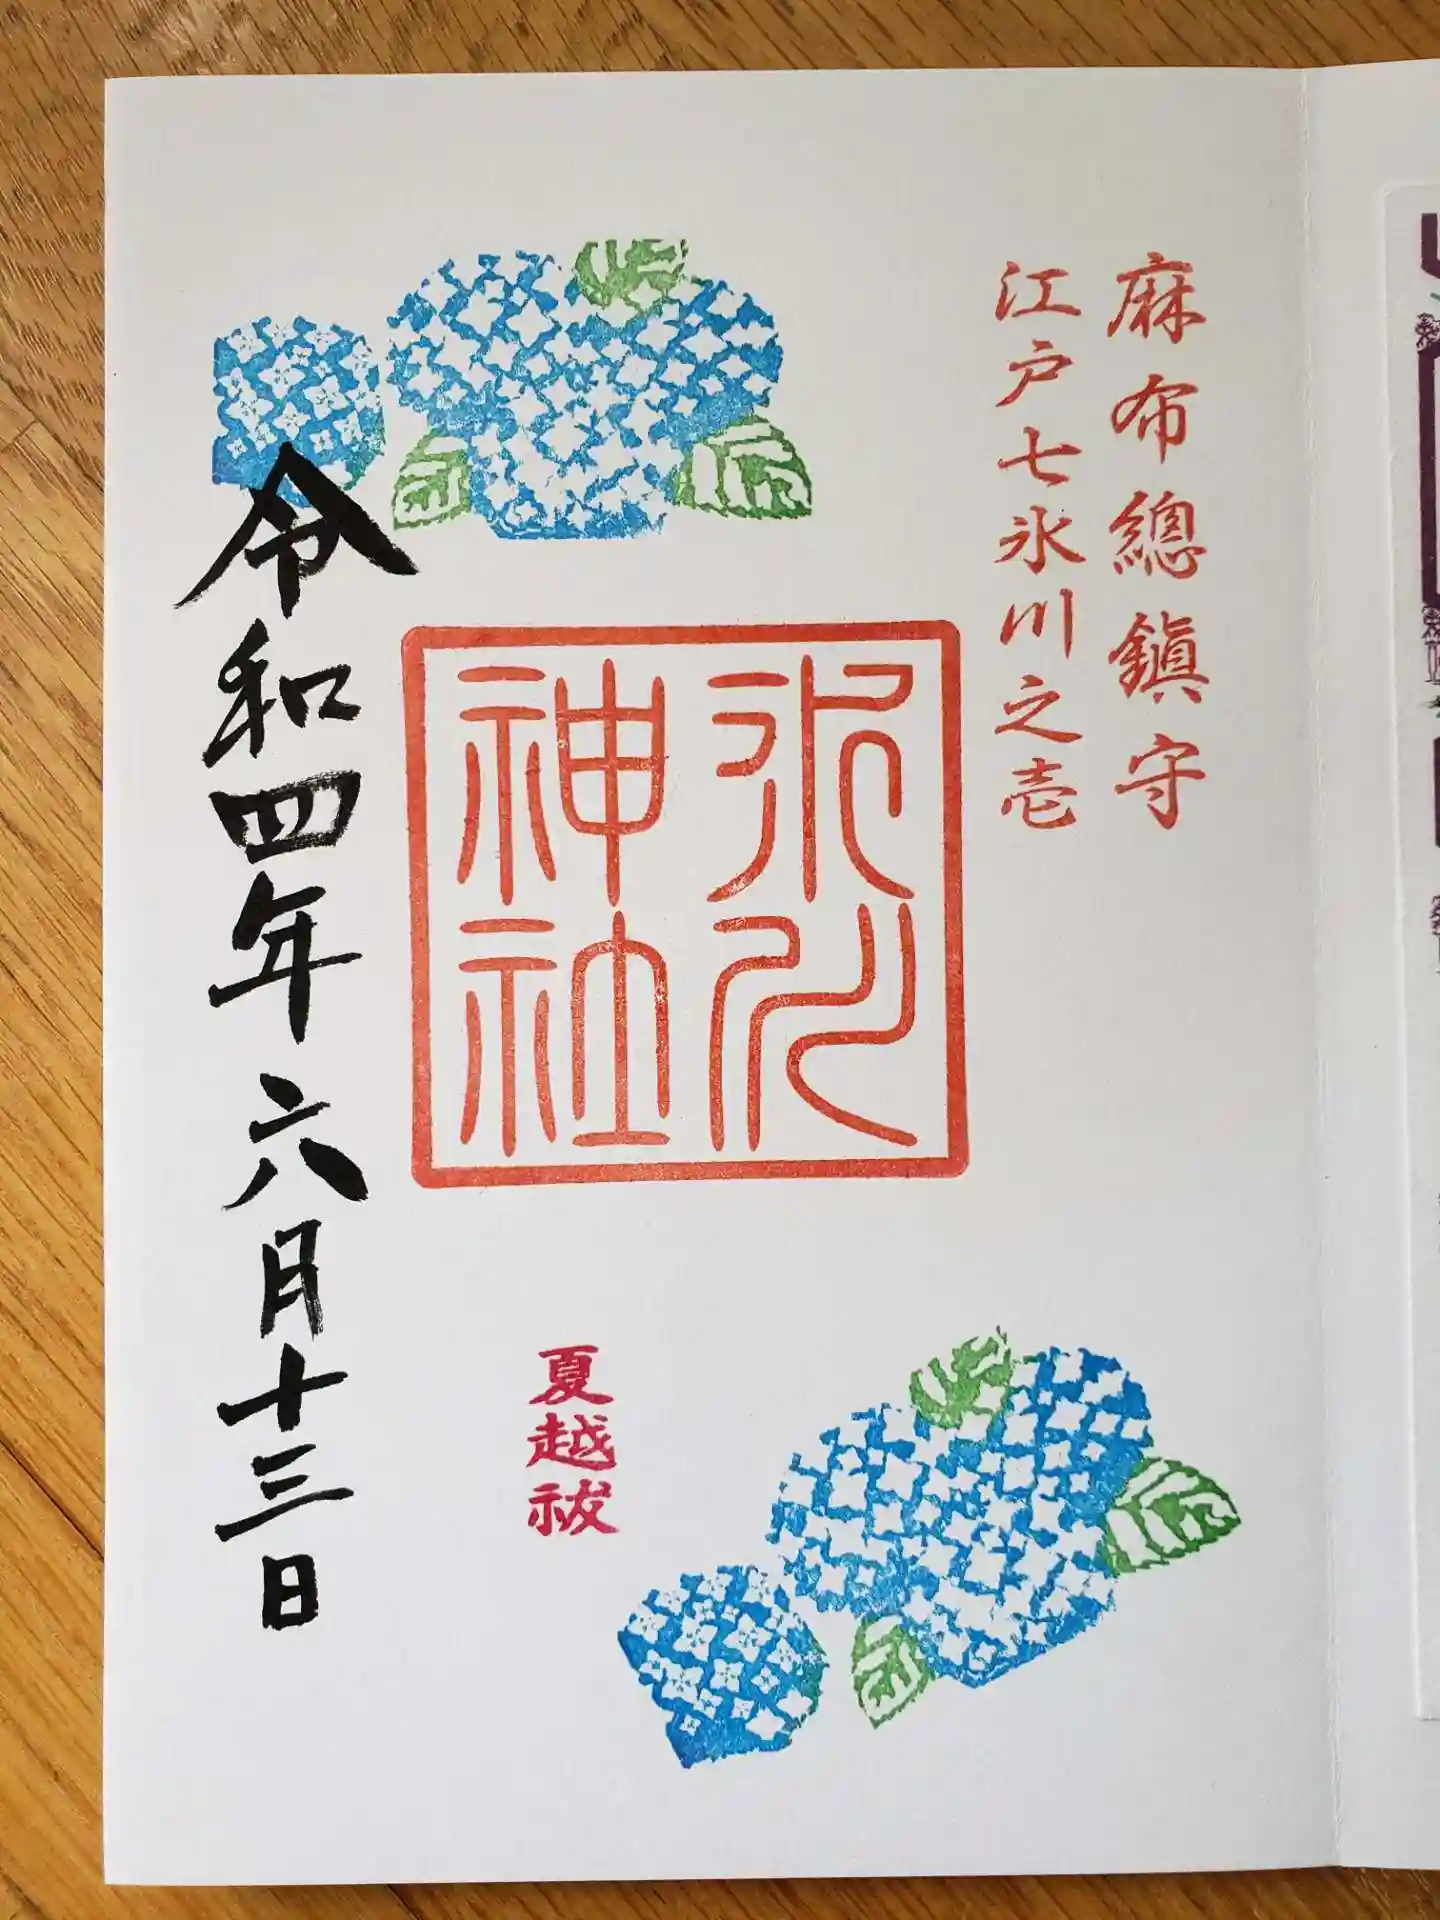 麻布總鎭守
江戸七氷川之壱
氷川
神社
夏越祓
令和四年六月十三日